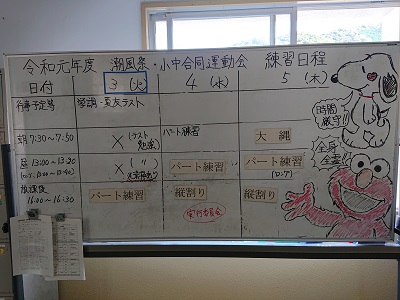 令和元年度 潮風祭・小中合同運動会 練習日程
日付 3(火) 4(水) 5(木)
行事予定等 学調・実力テスト
朝 7:30~7:50 × (テスト勉強) パート練習 大縄
昼 13:00~13:20 × (〃) パート練習 パート練習
(ロング)
放課後
16:00~16:30 パート練習 縦割り 縦割り
実行委員会
時間
厳守!!
全身
全霊!!